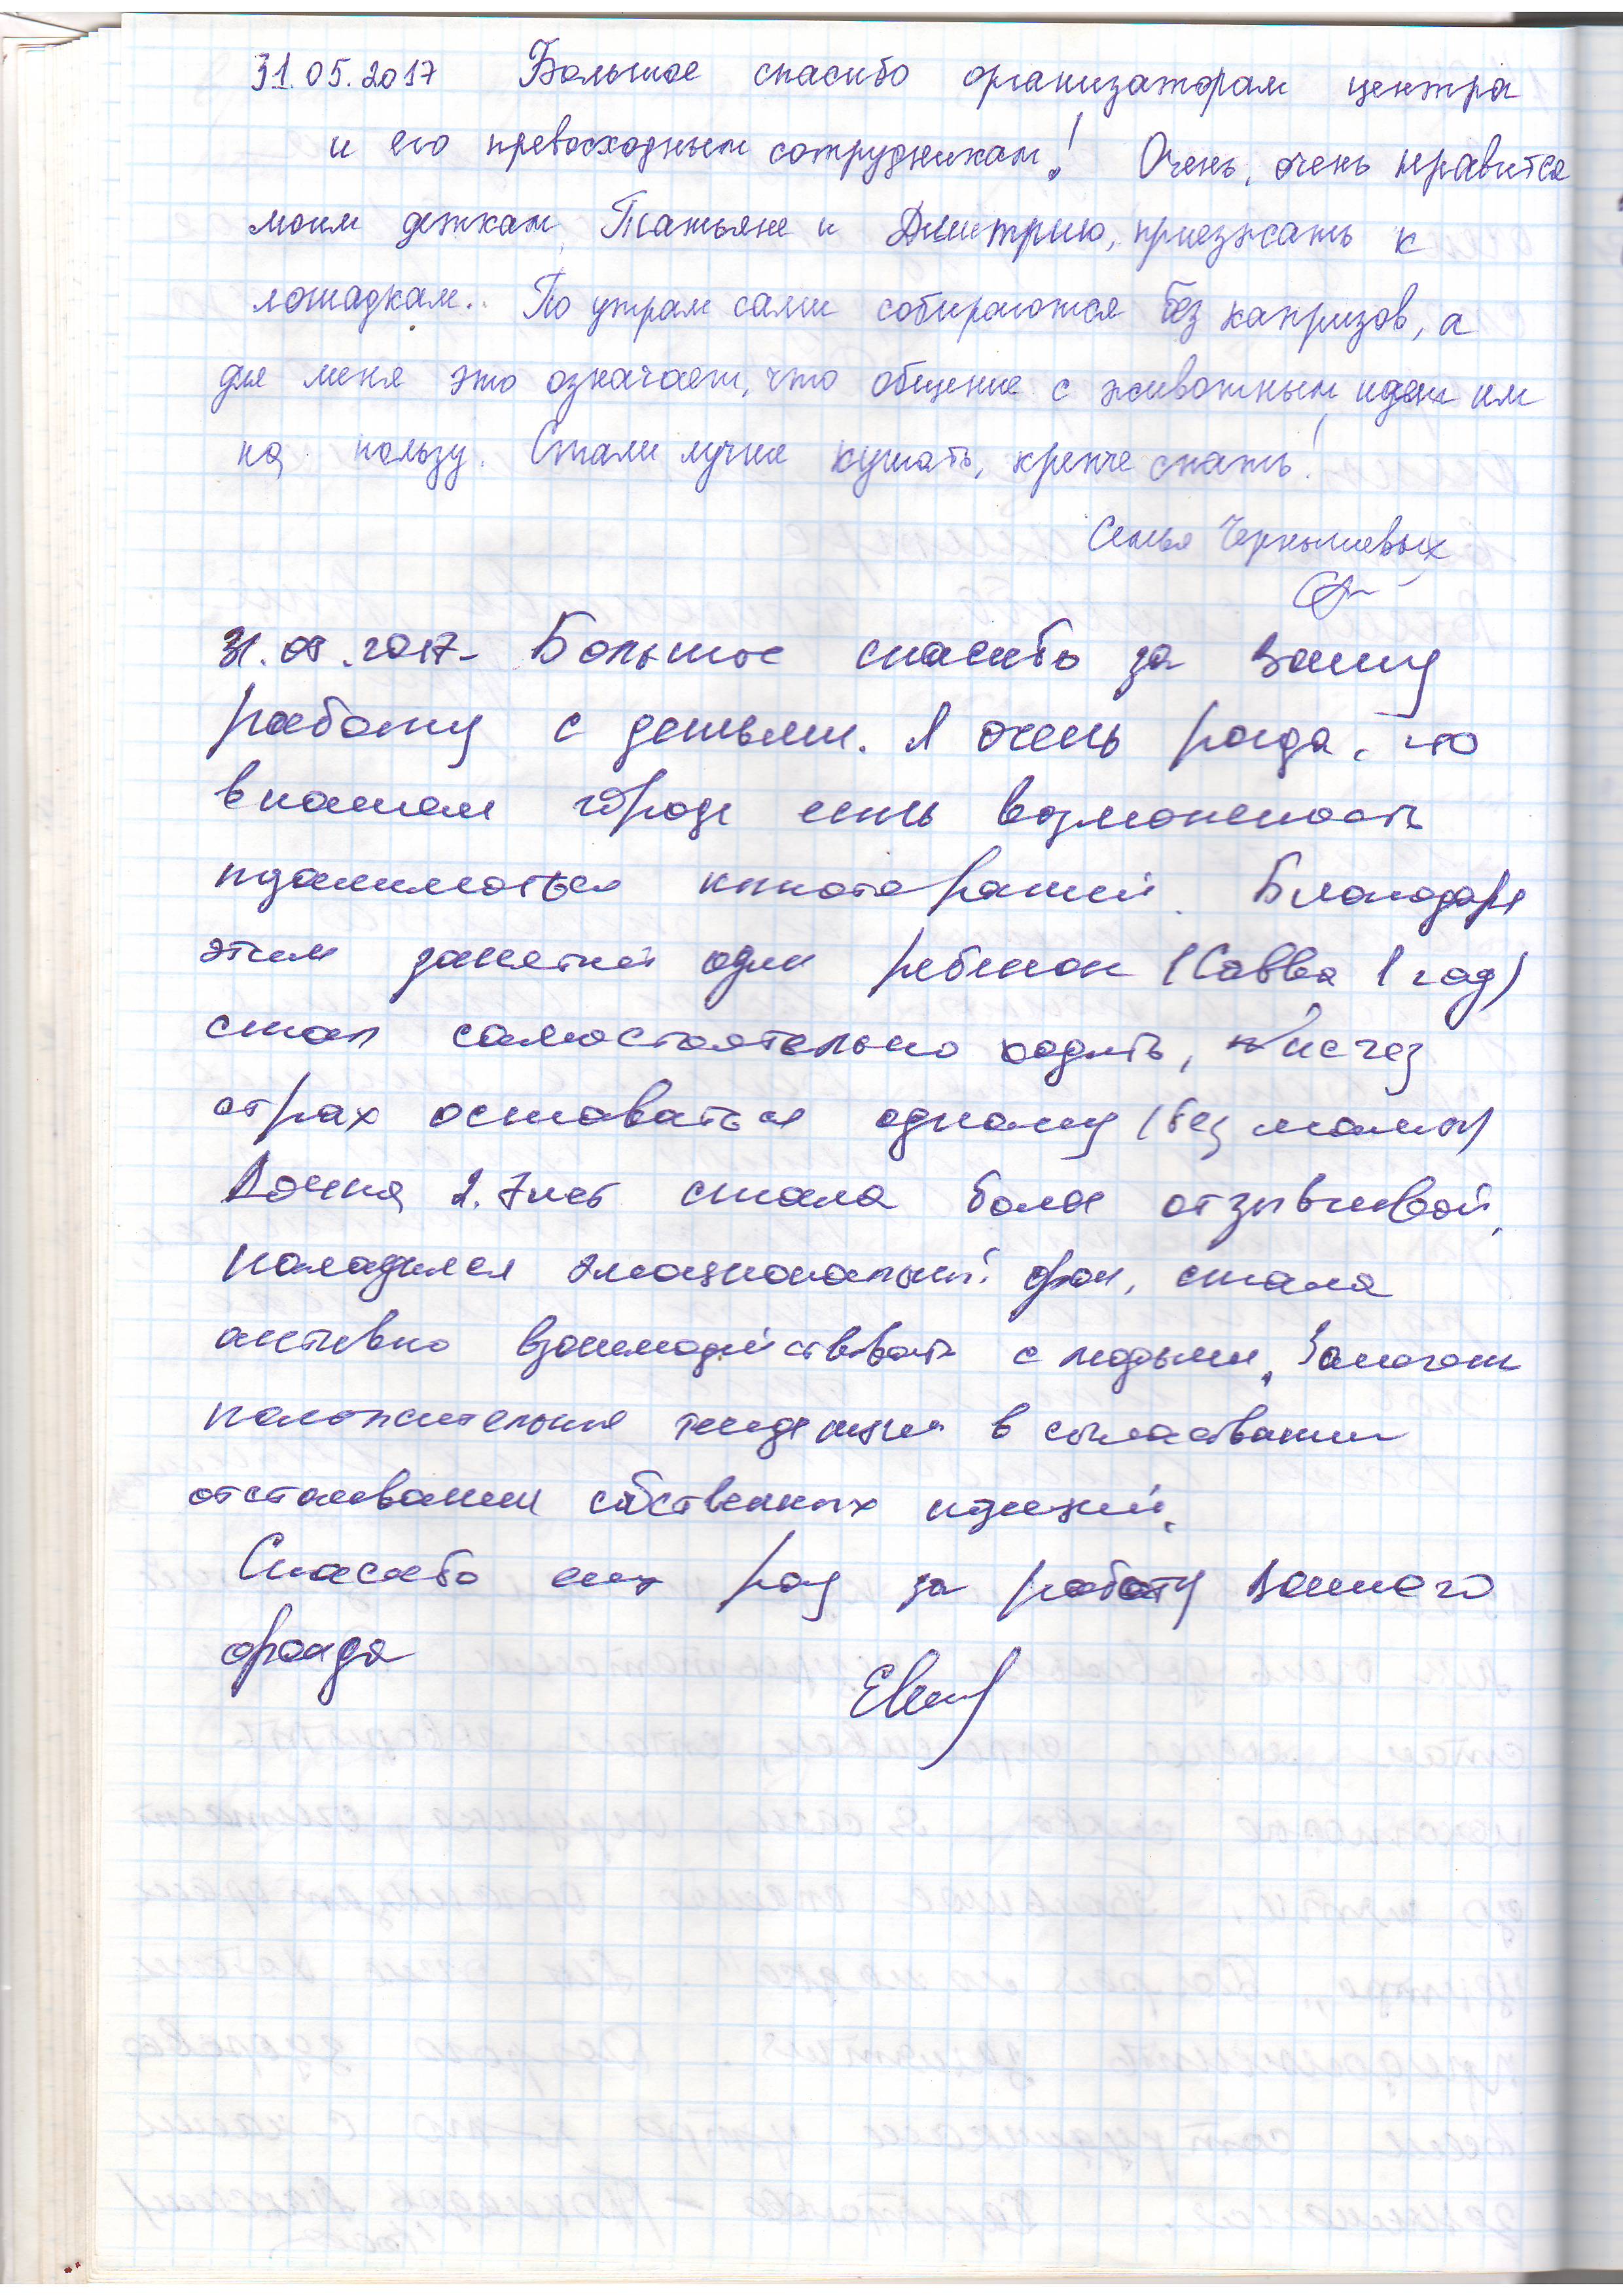 31.05.2017 Большое спасибо организаторам центра
и его превосходным сотрудникам! Очень, очень нравится
моим деткам, Татьяне и Дмитрию, приезжать к
лошадкам.. По утрам сами собираются без капризов, а
для меня это означает, что общение с животным идет им
на пользу. Стали лучше кушать, крепче спать!
Семья Чернышевых
31.05.2017- Большое спасибо за Вашу
работу с детьми. Я очень рада, что
в нашем городе есть возможность
иппотерапией. Благодаря
этим занятий один ребенок (Савва 1 год)
стал самостоятельно ходить, исчез
страх оставаться одному (без мамы)
Дочка 2.7 лет стала более отзывчивой,
наладился эмоциональный фон, стала
активно взаимодействовать с людьми,
положительные тенденция в
отстаивании собственных позиций.
Спасибо еще раз за работу Вашего
фонда